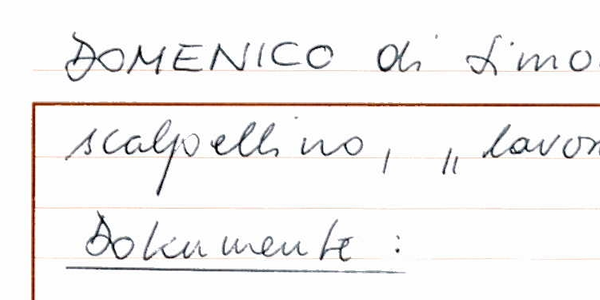 DOMENICO di Simo
scalpellino, „lavor
Dokumente: